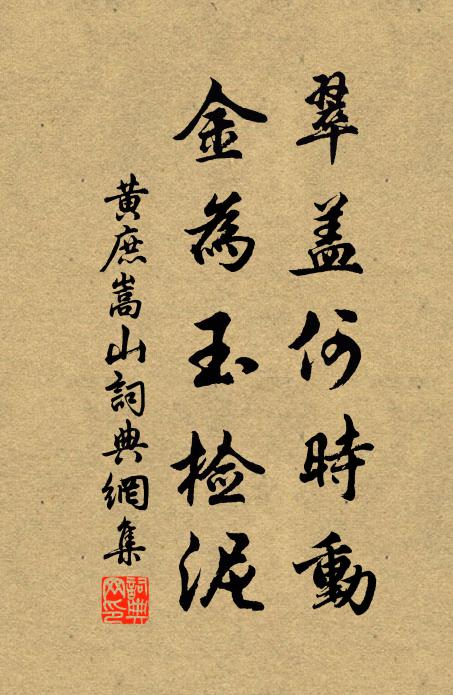 翠盖何時動
金為玉檢泥
黃庶嵩山詞典網集
詞典网印